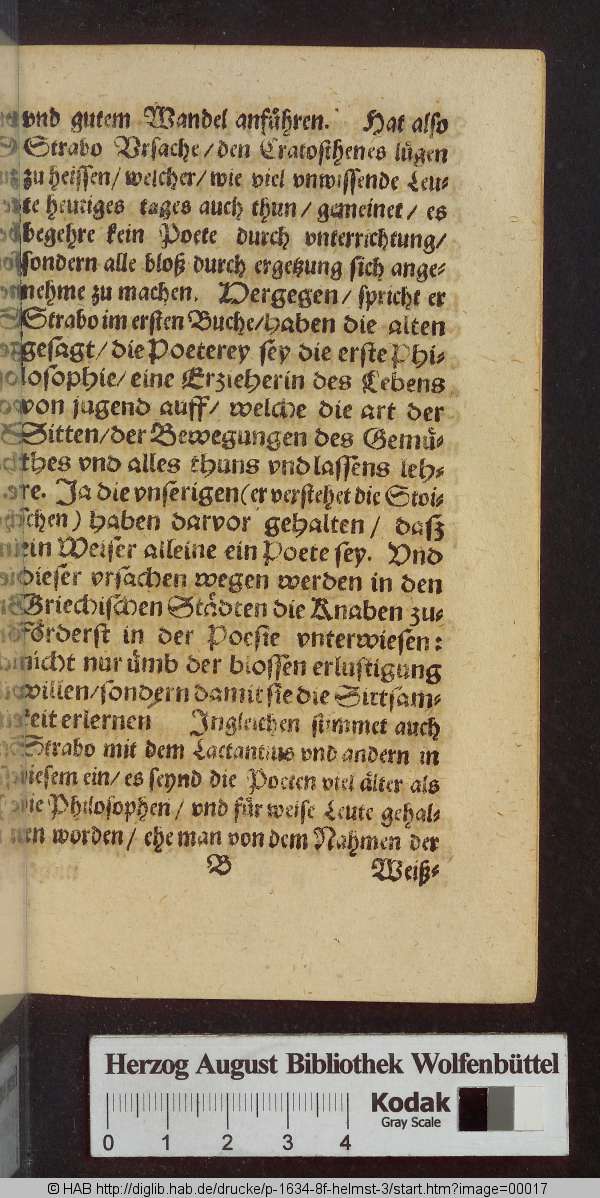 vnd gutem Wandel anfuͤhren. Hat also
Strabo Vrsache/den Eratosthenes luͤgen
zu heissen/welcher/wie viel vnwissende Leu-
te heutiges tages auch thun/gemeinet/es
begehre kein Poete durch vnterrichtung/
sondern alle bloß durch ergetzung sich ange-
nehme zu machen. Hergegen/spricht er
Strabo im ersten Buche/haben die alten
gesagt/die Poeterey sey die erste Phi-
losophie/eine Erzieherin des Lebens
von jugend auff/welche die art der
Sitten/der Bewegungen des Gemuͤ-
thes vnd alles thuns vnd lassens leh-
re. Ja die vnserigen (er verstehet die Stoi-
schen) haben darvor gehalten/daß
ein Weiser alleine ein Poete sey. Vnd
dieser vrsachen wegen werden in den
Griechischen Staͤdten die Knaben zu-
foͤrderst in der Poesie vnterwiesen:
nicht nur uͤmb der blossen erlustigung
willen/sondern damit sie die Sittsam-
keit erlernen Ingleichen stimmet auch
Strabo mit dem Lactantius vnd andern in
diesem ein/es seynd die Poeten viel aͤlter als
die Philosophen/vnd fuͤr weise Leute gehal-
ten worden/ehe man von dem Nahmen der
B Weiß-
Herzog August Bibliothek Wolfenbüttel
Kodak
Gray Scale
0 1 2 3 4
© HAB http://diglib.hab.de/drucke/p-1634-8f-helmst-3/start.htm?image=00017